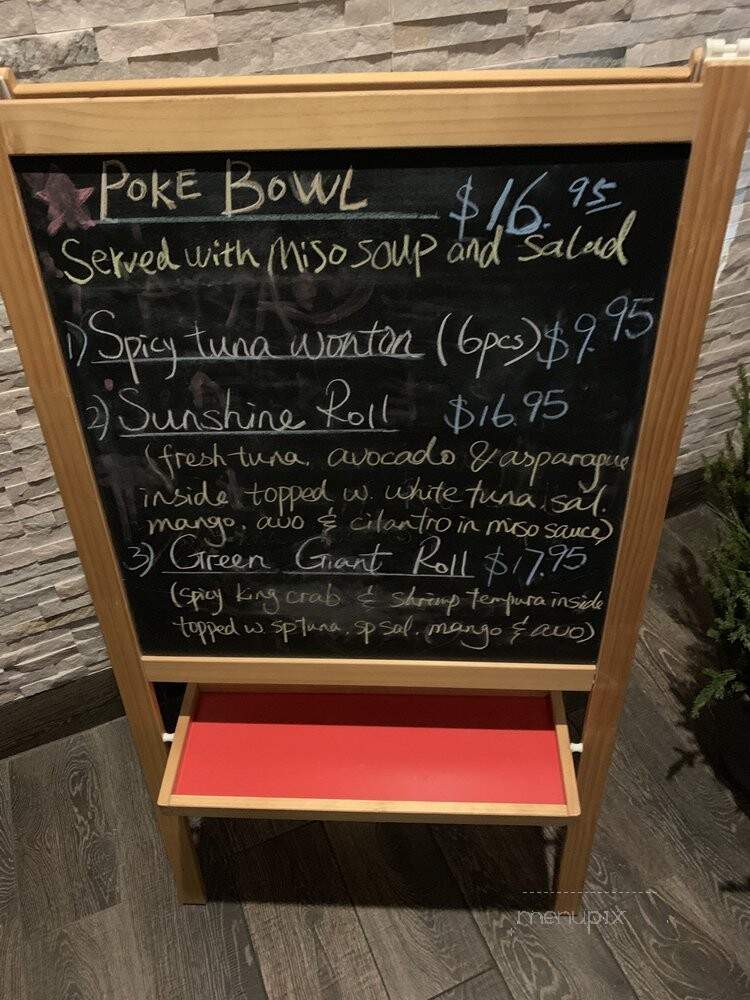 POKE BOWL $16.95
Served with Miso soup and Salad
1) Spicy tuna wonton (6pcs) $9.95
2) Sunshine Roll $16.95
(fresh tuna, avocado & asparague
inside topped w. white tuna, sal.
mango, avo & cilantro in miso sauce)
3) Green Giant Roll $17.95
(spicy king crab & shrimp tempura inside
topped w. sp tuna, sp sal, mango & avo)
menupix